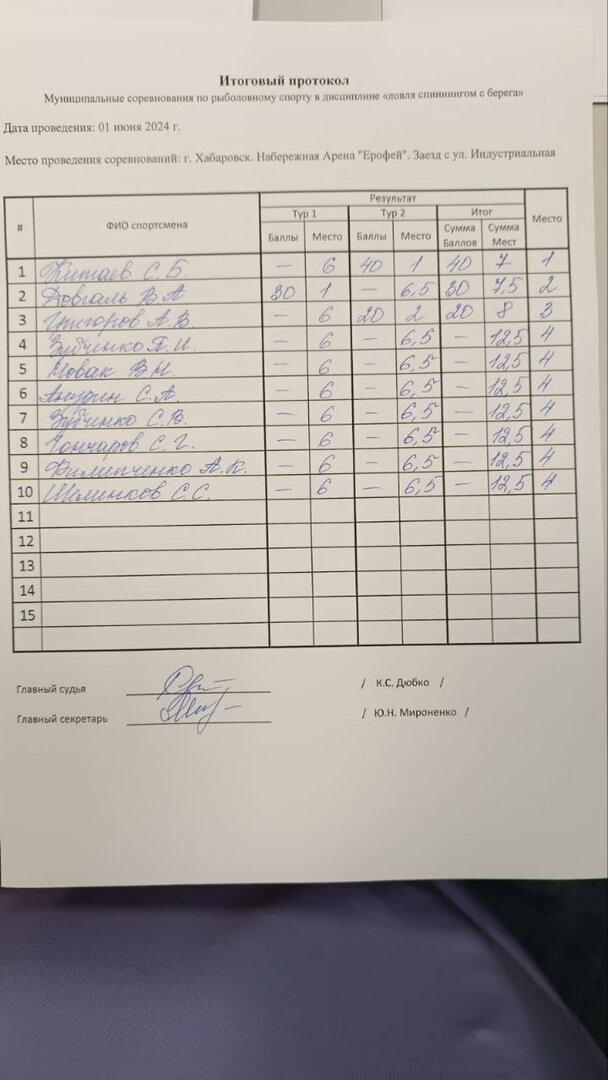 Итоговый протокол
Муниципальные соревнования по рыболовному спорту в дисциплине «ловля спиннингом с берега»
Дата проведения: 01 июня 2024 г.
Место проведения соревнований: г. Хабаровск. Набережная Арена "Ерофей". Заезд с ул. Индустриальная
# ФИО спортсмена Результат Место
Тур 1 Тур 2 Итог
Баллы Место Баллы Место Сумма Баллов Сумма Мест
1 Китаев С.Б. — 6 40 1 40 7 1
2 Довгаль В.А 30 1 — 6,5 30 7,5 2
3 Григоров А.В. — 6 20 2 20 8 3
4 Зубченко П.И. — 6 — 6,5 — 12,5 4
5 Новак В.Н. — 6 — 6,5 — 12,5 4
6 С.А. — 6 — 6,5 — 12,5 4
7 Зубченко С.В. — 6 — 6,5 — 12,5 4
8 Гончаров С.Г. — 6 — 6,5 — 12,5 4
9 Филипченко А.К. — 6 — 6,5 — 12,5 4
10 Шаменков С.С. — 6 — 6,5 — 12,5 4
11
12
13
14
15
Главный судья / К.С. Дюбко /
Главный секретарь / Ю.Н. Мироненко /